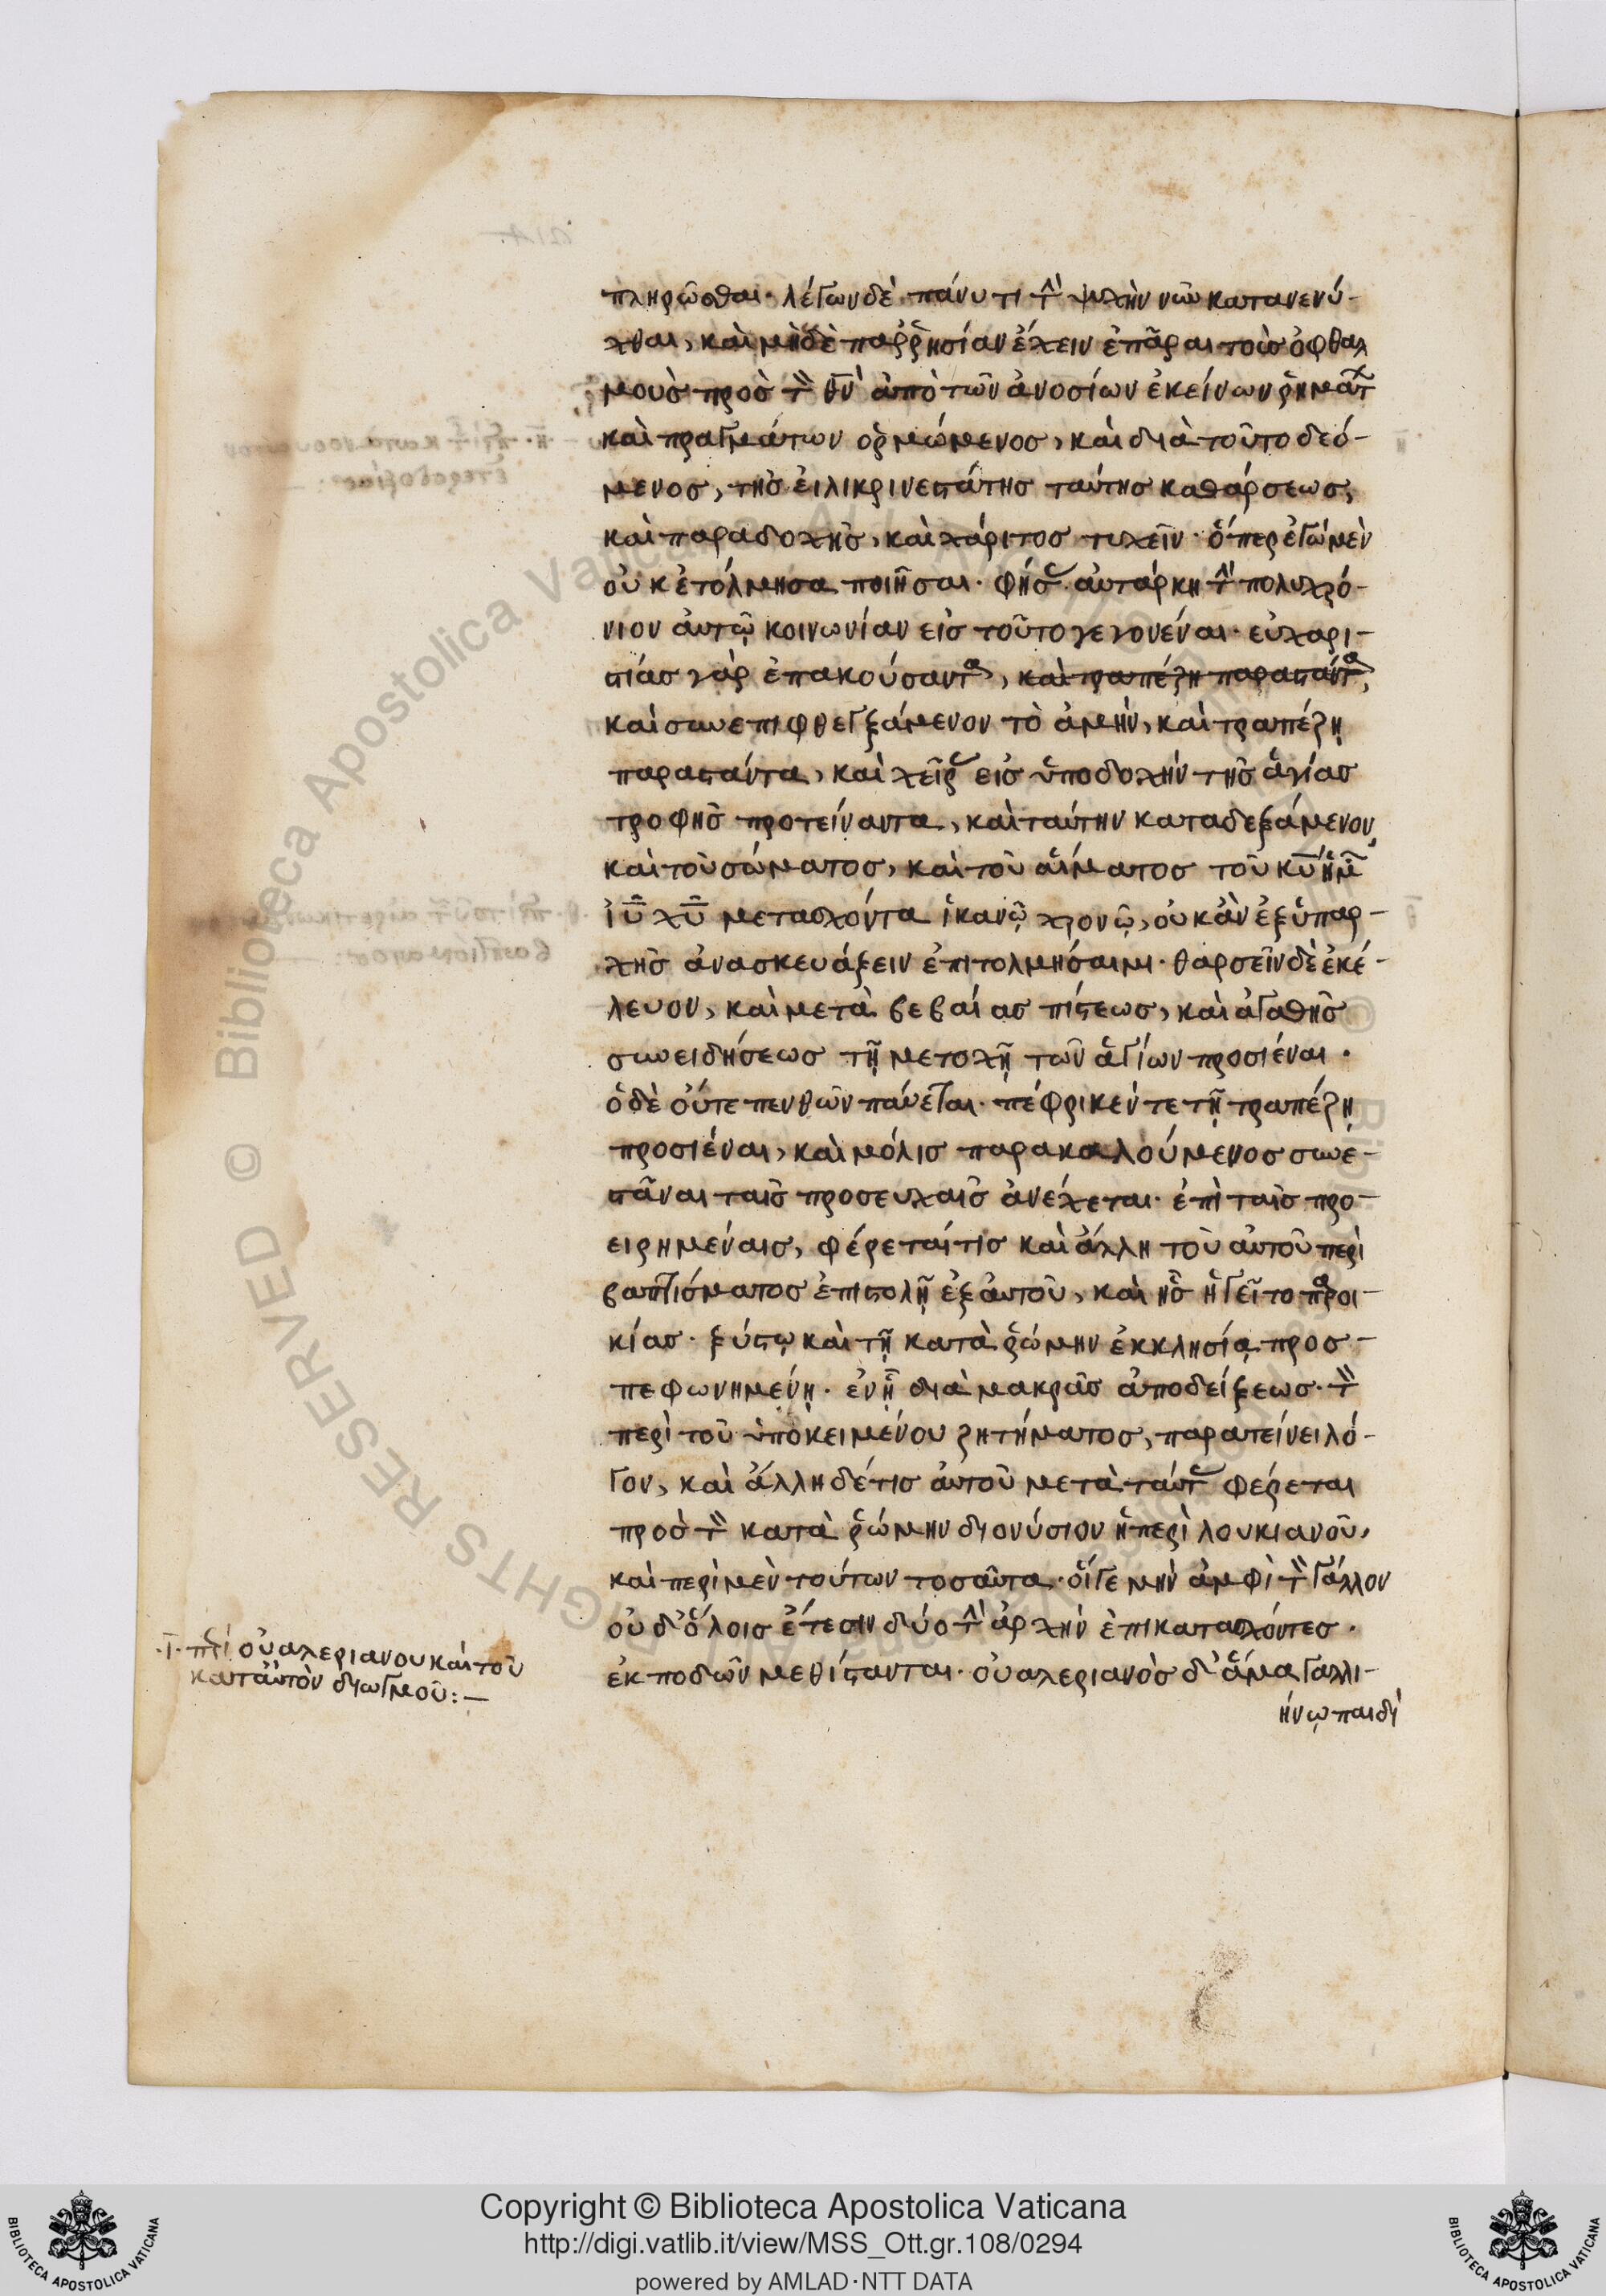 πληρῶσθαι· λέγων δὲ πάνυ τι τ̀ ψυχὴν νῦν κατανενύ-
χθαι, καὶ μηδὲ παρρησίαν ἔχειν ἐπᾶραι τοὺς ὀφθαλ
μοὺς πρὸς τ̀ θν̄ ἀπὸ τῶν ἀνοσίων ἐκείνων ῥημάτ
καὶ πραγμάτων ὁρμώμενος, καὶ διὰ τοῦτο δεό-
μενος, τῆς εἰλικρινεστάτης ταύτης καθάρσεως,
καὶ παραδοχῆς, καὶ χάριτος τυχεῖν· ὅπερ ἐγὼ μὲν
οὐκ ἐτόλμησα ποιῆσαι· φήσ αὐτάρκη τ̀ πολυχρό-
νιον αὐτῷ κοινωνίαν εἰς τοῦτο γεγονέναι· εὐχαρι-
στίας γὰρ ἐπακούσαντα, καὶ τραπέζη παραστάντα,
καὶ συνεπιφθεγξάμενον τὸ ἀμήν, καὶ τραπέζῃ
παραστάντα, καὶ χεῖρ εἰς ὑποδοχὴν τῆς ἁγίας
τροφῆς προτείναντα, καὶ ταύτην καταδεξάμενον,
καὶ τοῦ σώματος, καὶ τοῦ αἵματος τοῦ κῡ ἡμ
ἰῡ χῡ μετασχόντα ἱκανῷ χρονῷ, οὐκ ἂν ἐξ ὑπαρ-
χῆς ἀνασκευάζειν ἔτι τολμήσαιμι· θαρσεῖν δὲ ἐκέ-
λευον, καὶ μετὰ βεβαίας πίστεως, καὶ ἀγαθῆς
συνειδήσεως τῇ μετοχῇ τῶν ἁγίων προσιέναι·
ὁ δὲ οὔτε πενθῶν παύεται· πέφρικέν τε τῇ τραπέζῃ
προσιέναι, καὶ μόλις παρακαλούμενος συνε-
στᾶναι ταῖς προσευχαῖς ἀνέχεται· ἐπὶ ταῖς προ-
ειρημέναις, φέρεταί τις καὶ ἄλλη τοῦ αὐτοῦ περὶ
βαπτίσματος ἐπιστολῇ ἐξ αὐτοῦ, καὶ ἧς ἡγεῖτο παροι-
κίας· ξύστῳ καὶ τῇ κατὰ ῥώμην ἐκκλησίᾳ προσ-
πεφωνημένῃ· ἐν ᾗ διὰ μακρᾶς ἀποδείξεως· τ̀
περὶ τοῦ ὑποκειμένου ζητήματος, παρατείνει λό-
γον, καὶ ἄλλη δέ τις αὐτοῦ μετὰ ταύτ φέρεται
πρὸς τ̀ κατὰ ῥώμην διονύσιον ἡ περὶ λουκιανοῦ,
καὶ περὶ μὲν τούτων τοσαῦτα· οἵγε μὴν ἀμφὶ τ̀ γάλλον
οὐδ' ὅλοις ἔτεσιν δύο τ̀ ἀρχὴν ἐπικατασχόντες·
ἐκποδῶν μεθίστανται· οὐαλεριανὸς δ' ἅμα γαλλι-
ήνῳ παιδὶ
·ῑ· περί οὐαλεριανου καὶ τοῦ
κατ αὐτὸν διωγμοῦ: —
Copyright © Biblioteca Apostolica Vaticana
http://digi.vatlib.it/view/MSS_Ott.gr.108/0294
powered by AMLAD·NTT DATA
BIBLIOTECA APOSTOLICA VATICANA
BIBLIOTECA APOSTOLICA VATICANA